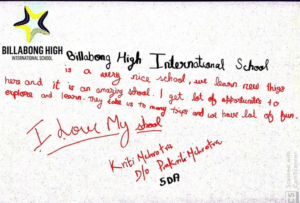 BILLABONG HIGH
INTERNATIONAL SCHOOL
Billabong High International School
is a very nice school, we learn new things
here and it is an amazing school. I get lot of opportunities to
explore and learn. They take us to many trips and we have lot of fun.
I Love My school
Kriti Mehrotra
D/o Prakriti Mehrotra
SDA